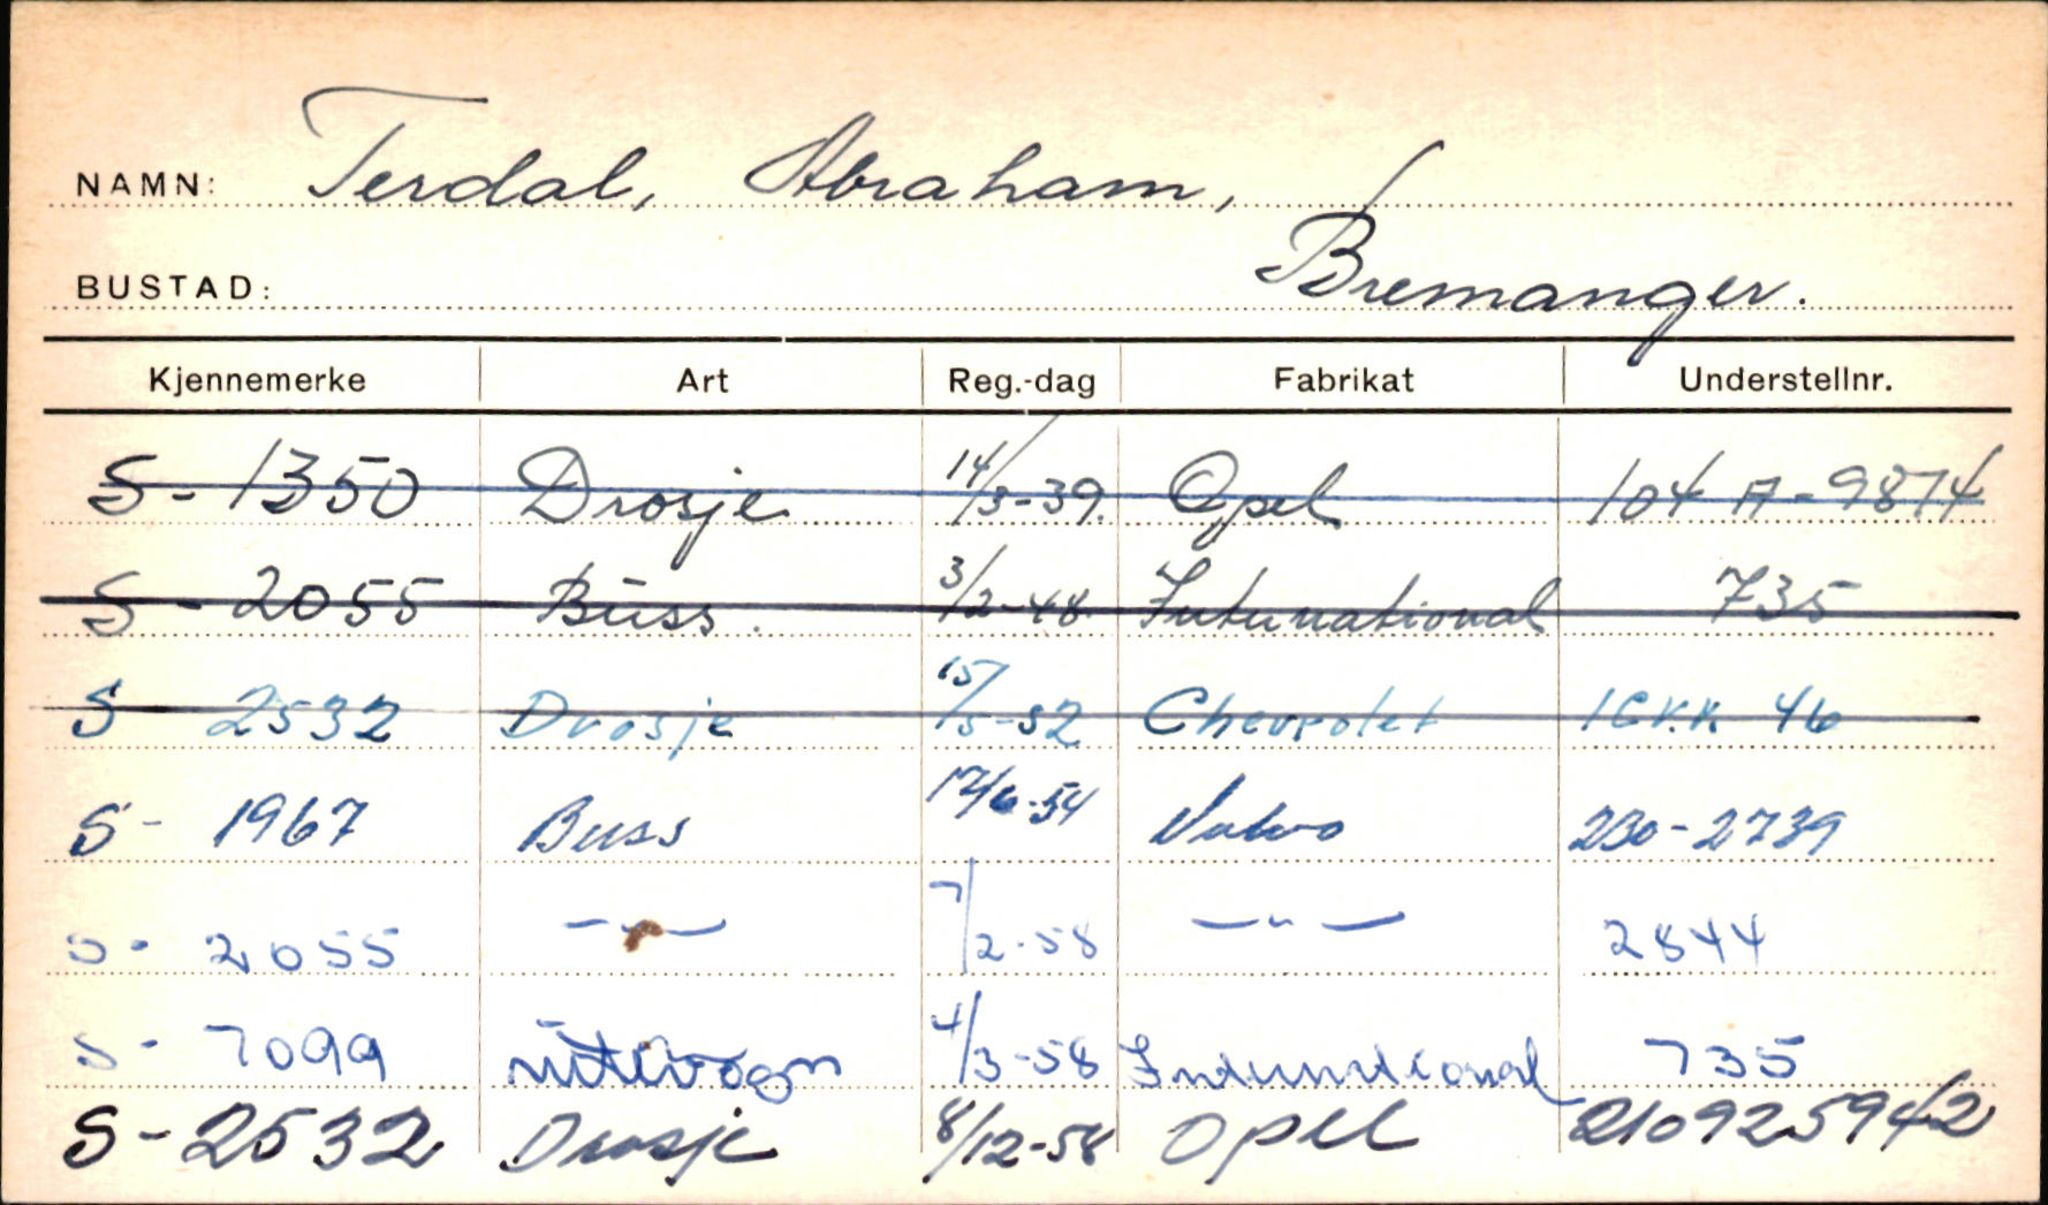 NAMN: Terdal, Abraham,
BUSTAD: Bremanger.
Kjennemerke Art Reg.-dag Fabrikat Understellnr.
S - 1350 Drosje 14/3-39. Opel 104 A - 9874
S - 2055 Buss. 3/2-48 International 735
S 2532 Drosje 15/5-52 Chevrolet 1CKK 46
S - 1967 Buss 17/6-54 Volvo 230-2739
S - 2055 —"— 7/2-58 —"— 2844
S - 7099 4/3-58 International 735
S - 2532 Drosje 8/12-58 Opel 210925942